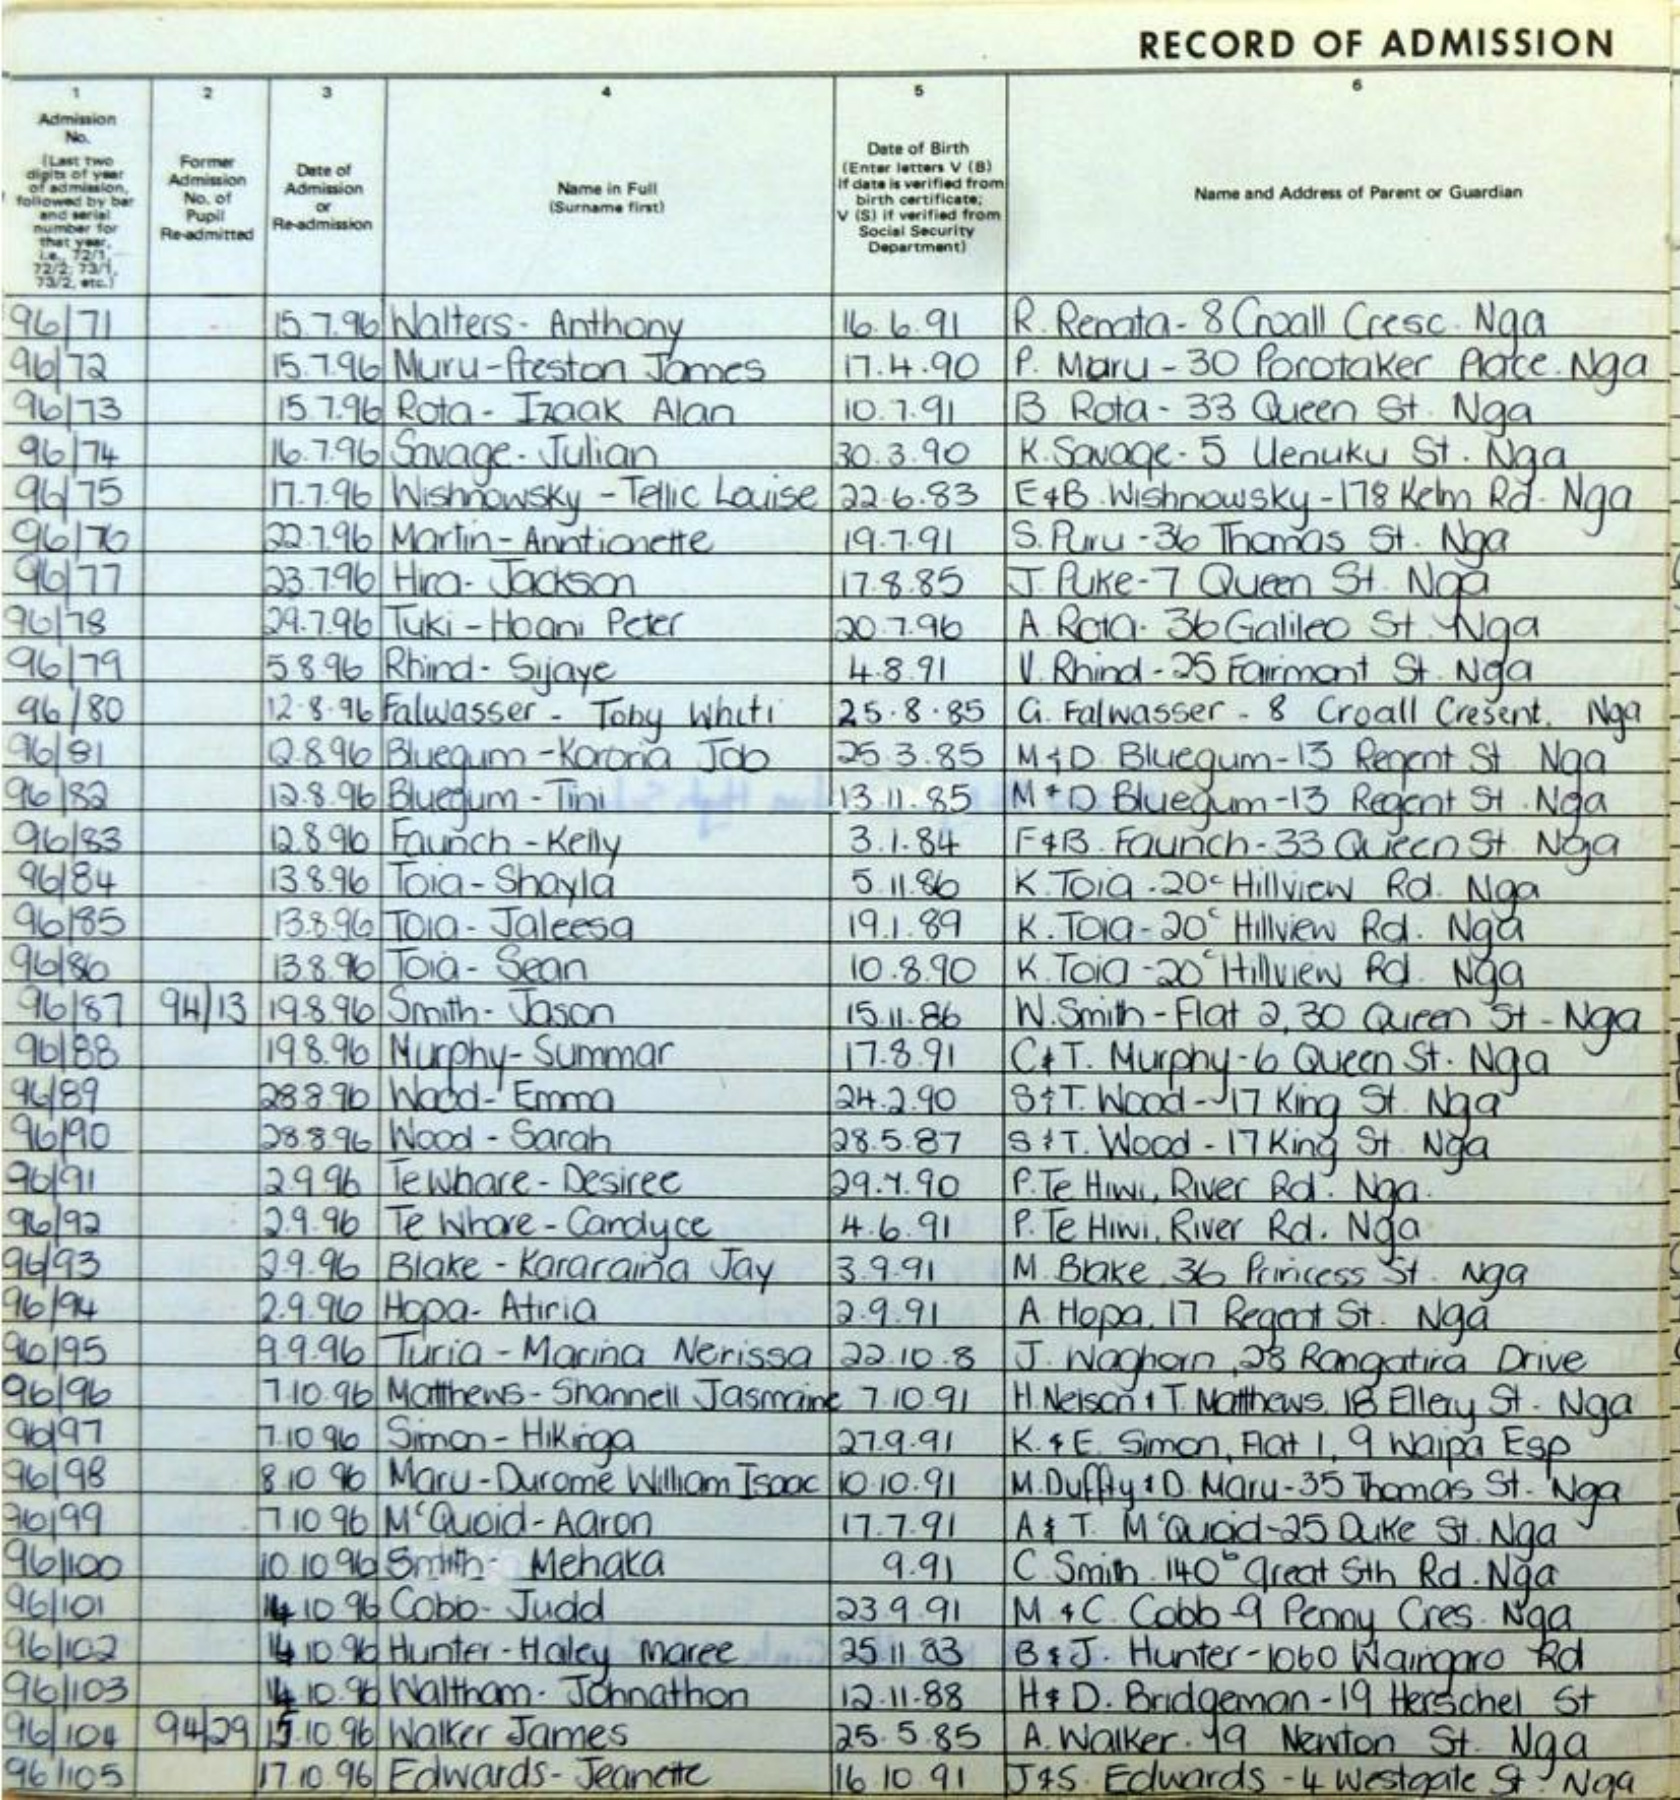 RECORD OF ADMISSION
1 2 3 4 5 6
Admission No. (Last two digits of year of admission, followed by bar and serial number for that year, i.e., 72/1, 72/2, 73/1, 73/2, etc.)
Former Admission No. of Pupil Re-admitted
Date of Admission or Re-admission
Name in Full (Surname first)
Date of Birth (Enter letters V (B) if date is verified from birth certificate; V (S) if verified from Social Security Department)
Name and Address of Parent or Guardian
96/71 15.7.96 Walters- Anthony 16.6.91 R. Renata- 8 Croall Cresc. Nga
96/72 15.7.96 Muru-Preston James 17.4.90 P. Maru - 30 Porotaker Place. Nga
96/73 15.7.96 Rota- Izaak Alan 10.7.91 B Rota- 33 Queen St. Nga
96/74 16.7.96 Savage- Julian 30.3.90 K. Savage- 5 Uenuku St. Nga
96/75 17.7.96 Wishnowsky -Tellic Louise 22.6.83 E&B. Wishnowsky -178 Kelm Rd. Nga
96/76 22.7.96 Martin- Anntionette 19.7.91 S. Puru -36 Thomas St. Nga
96/77 23.7.96 Hira- Jackson 17.8.85 J. Puke-7 Queen St. Nga
96/78 29.7.96 Tuki - Hoani Peter 20.7.96 A. Rota- 36 Galileo St. Nga
96/79 5.8.96 Rhind- Sijaye 4.8.91 V. Rhind -25 Fairmont St. Nga
96/80 12.8.96 Falwasser - Toby Whiti 25.8.85 G. Falwasser - 8 Croall Cresent. Nga
96/81 12.8.96 Bluegum -Kororia Job 25.3.85 M&D. Bluegum-13 Regent St Nga
96/82 12.8.96 Bluegum - Tini 13.11.85 M&D Bluegum-13 Regent St. Nga
96/83 12.8.96 Faunch -Kelly 3.1.84 F&B. Faunch- 33 Queen St Nga
96/84 13.8.96 Toia- Shayla 5.11.86 K. Toia -20c Hillview Rd. Nga
96/85 13.8.96 Toia- Jaleesa 19.1.89 K. Toia -20c Hillview Rd. Nga
96/86 13.8.96 Toia- Sean 10.8.90 K. Toia -20c Hillview Rd. Nga
96/87 94/13 19.8.96 Smith- Jason 15.11.86 W. Smith - Flat 2, 30 Queen St - Nga
96/88 19.8.96 Murphy- Summar 17.8.91 C&T. Murphy-6 Queen St. Nga
96/89 28.8.96 Wood- Emma 24.2.90 S&T. Wood -17 King St. Nga
96/90 28.8.96 Wood - Sarah 28.5.87 S&T. Wood -17 King St. Nga
96/91 2.9.96 Te Whare- Desiree 29.4.90 P. Te Hiwi, River Rd. Nga.
96/92 2.9.96 Te Whare-Candyce 4.6.91 P. Te Hiwi, River Rd. Nga
96/93 2.9.96 Blake - Kararaina Jay 3.9.91 M. Blake, 36 Princess St. Nga
96/94 2.9.96 Hopa- Atiria 2.9.91 A. Hopa, 17 Regent St. Nga
96/95 9.9.96 Turia - Marina Nerissa 22.10.8 J. Waghorn, 28 Rangatira Drive
96/96 7.10.96 Matthews- Shannell Jasmaine 7.10.91 H. Nelson & T. Matthews, 18 Ellery St. Nga
96/97 7.10.96 Simon - Hikinga 27.9.91 K. & E. Simon, Flat 1, 9 Waipa Esp
96/98 8.10.96 Maru -Durome William Isaac 10.10.91 M. Duffty & D. Maru-35 Thomas St. Nga
96/99 7.10.96 McQuoid- Aaron 17.7.91 A & T. McQuoid-25 Duke St. Nga
96/100 10.10.96 Smith- Mehaka 9.91 C. Smith 140b Great Sth Rd. Nga
96/101 14.10.96 Cobb- Judd 23.9.91 M. & C. Cobb-9 Penny Cres. Nga
96/102 14.10.96 Hunter- Haley Maree 25.11.83 B & J. Hunter-1060 Waingaro Rd
96/103 14.10.96 Waltham- Johnathon 12.11.88 H & D. Bridgeman -19 Herschel St
96/104 94/29 15.10.96 Walker James 25.5.85 A. Walker. 49 Newton St. Nga
96/105 17.10.96 Edwards- Jeanette 16.10.91 J&S. Edwards -4 Westgate St. Nga